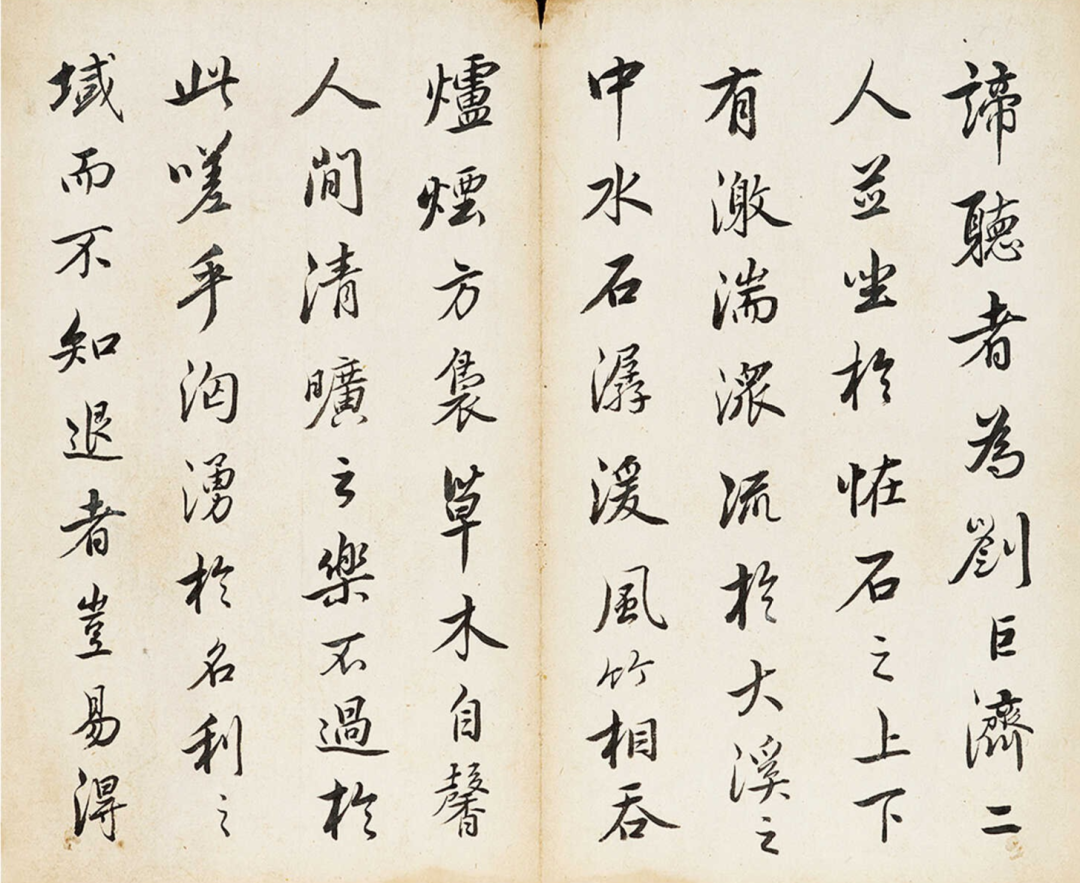 諦聽者為劉巨濟二
人並坐於恠石之上下
有激湍潨流於大溪之
中水石潺湲風竹相吞
爐煙方裊草木自馨
人間清曠之樂不過於
此嗟乎洶湧於名利之
域而不知退者豈易得